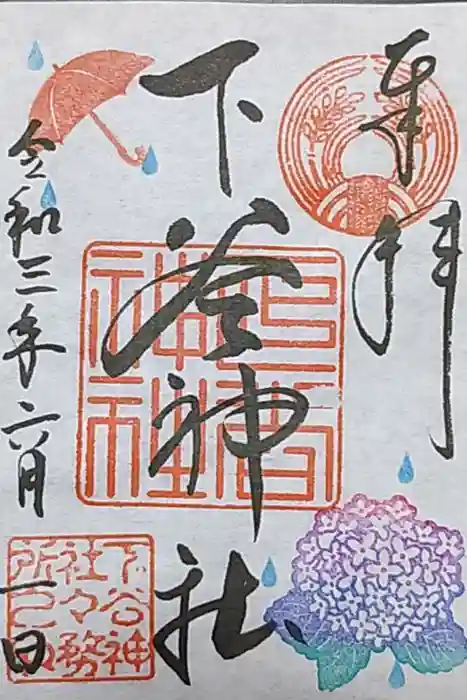 奉拝
下谷神社
令和三年六月一日
下谷神
社々務
所之印